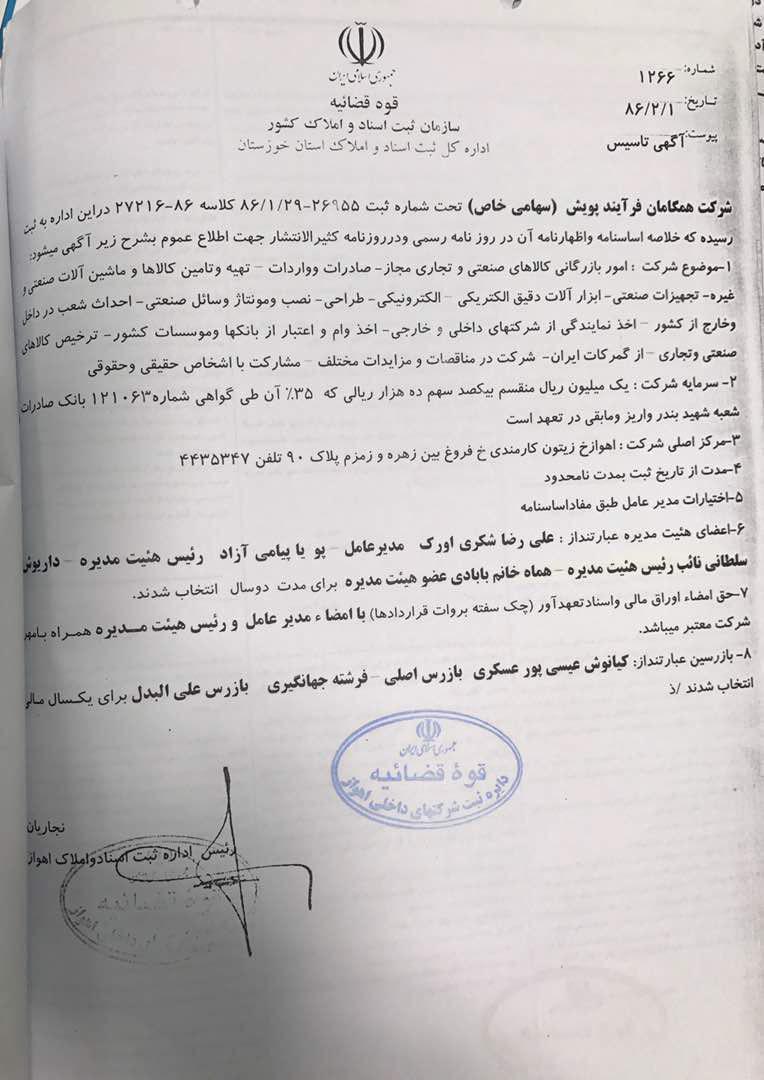 جمهوری اسلامی ایران
قوه قضائیه
سازمان ثبت اسناد و املاک کشور
اداره کل ثبت اسناد و املاک استان خوزستان
شماره: ۱۲۶۶
تاریخ: ۸۶/۲/۱
پیوست: آگهی تاسیس
شرکت همگامان فرآیند پویش (سهامی خاص) تحت شماره ثبت ۲۶۹۵۵-۸۶/۱/۲۹ کلاسه ۸۶-۲۷۲۱۶ دراین اداره به ثبت
رسیده که خلاصه اساسنامه واظهارنامه آن در روز نامه رسمی ودرروزنامه کثیرالانتشار جهت اطلاع عموم بشرح زیر آگهی میشود:
۱-موضوع شرکت : امور بازرگانی کالاهای صنعتی و تجاری مجاز- صادرات وواردات – تهیه وتامین کالاها و ماشین آلات صنعتی و
غیره- تجهیزات صنعتی- ابزار آلات دقیق الکتریکی – الکترونیکی- طراحی- نصب ومونتاژ وسائل صنعتی- احداث شعب در داخل
وخارج از کشور – اخذ نمایندگی از شرکتهای داخلی و خارجی- اخذ وام و اعتبار از بانکها وموسسات کشور- ترخیص کالاهای
صنعتی وتجاری – از گمرکات ایران- شرکت در مناقصات و مزایدات مختلف – مشارکت با اشخاص حقیقی وحقوقی
۲- سرمایه شرکت : یک میلیون ریال منقسم بیکصد سهم ده هزار ریالی که ۳۵٪ آن طی گواهی شماره ۱۲۱۰۶۳ بانک صادرات
شعبه شهید بندر واریز ومابقی در تعهد است
۳-مرکز اصلی شرکت : اهوازخ زیتون کارمندی خ فروغ بین زهره و زمزم پلاک ۹۰ تلفن ۴۴۳۵۳۴۷
۴-مدت از تاریخ ثبت بمدت نامحدود
۵-اختیارات مدیر عامل طبق مفاداساسنامه
۶-اعضای هئیت مدیره عبارتنداز : علی رضا شکری اورک مدیرعامل – پو یا پیامی آزاد رئیس هئیت مدیره – داریوش
سلطانی نائب رئیس هئیت مدیره – هماه خانم بابادی عضو هیئت مدیره برای مدت دوسال انتخاب شدند.
۷-حق امضاء اوراق مالی واسنادتعهدآور (چک سفته بروات قراردادها) با امضا ء مدیر عامل و رئیس هیئت مــدیره همراه بامهر
شرکت معتبر میباشد.
۸- بازرسین عبارتنداز: کیانوش عیسی پور عسکری بازرس اصلی – فرشته جهانگیری بازرس علی البدل برای یکسال مالی
انتخاب شدند /ذ
جمهوری اسلامی ایران
قوهٔ قضائیه
دایره ثبت شرکتهای داخلی اهواز
نجاریان
رئیس اداره ثبت اسنادواملاک اهواز
قوه قضائیه
داخلی اهواز